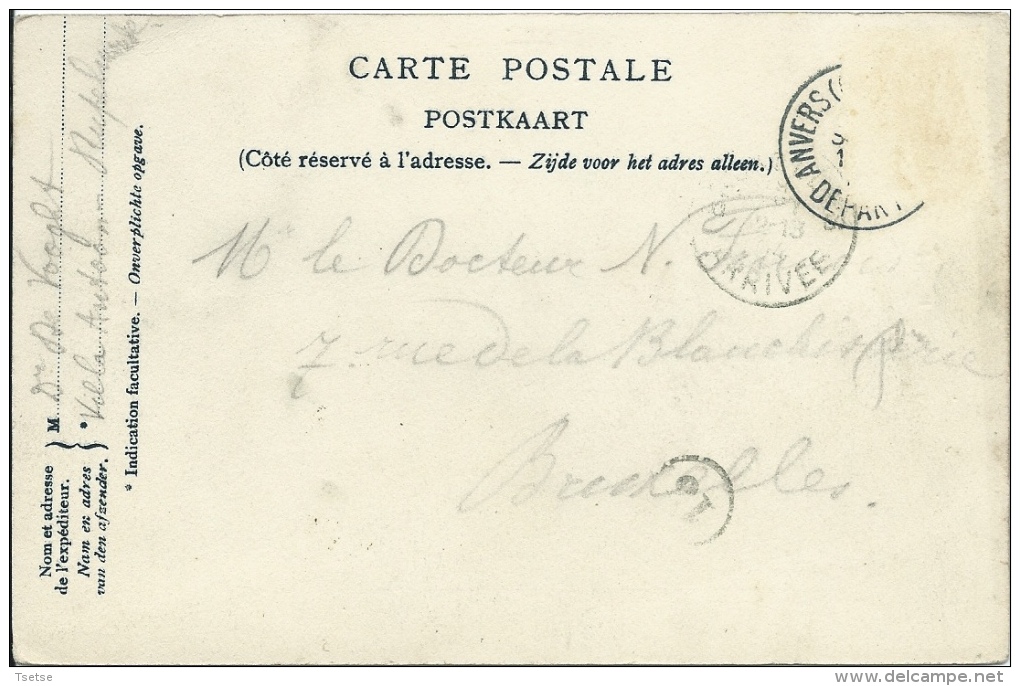 CARTE POSTALE
POSTKAART
(Côté réservé à l'adresse. — Zijde voor het adres alleen.)
ANVERS (
9
1
DÉPART
12-13
ARRIVÉE
Mr le Docteur N.
7 rue de la Blanchisserie
Bruxelles.
Nom et adresse
de l'expéditeur.
Nam en adres
van den afzender.
M Dr De Vooght
*Villa
* Indication facultative. — Onverplichte opgave.
Tsetse
delcampe.net